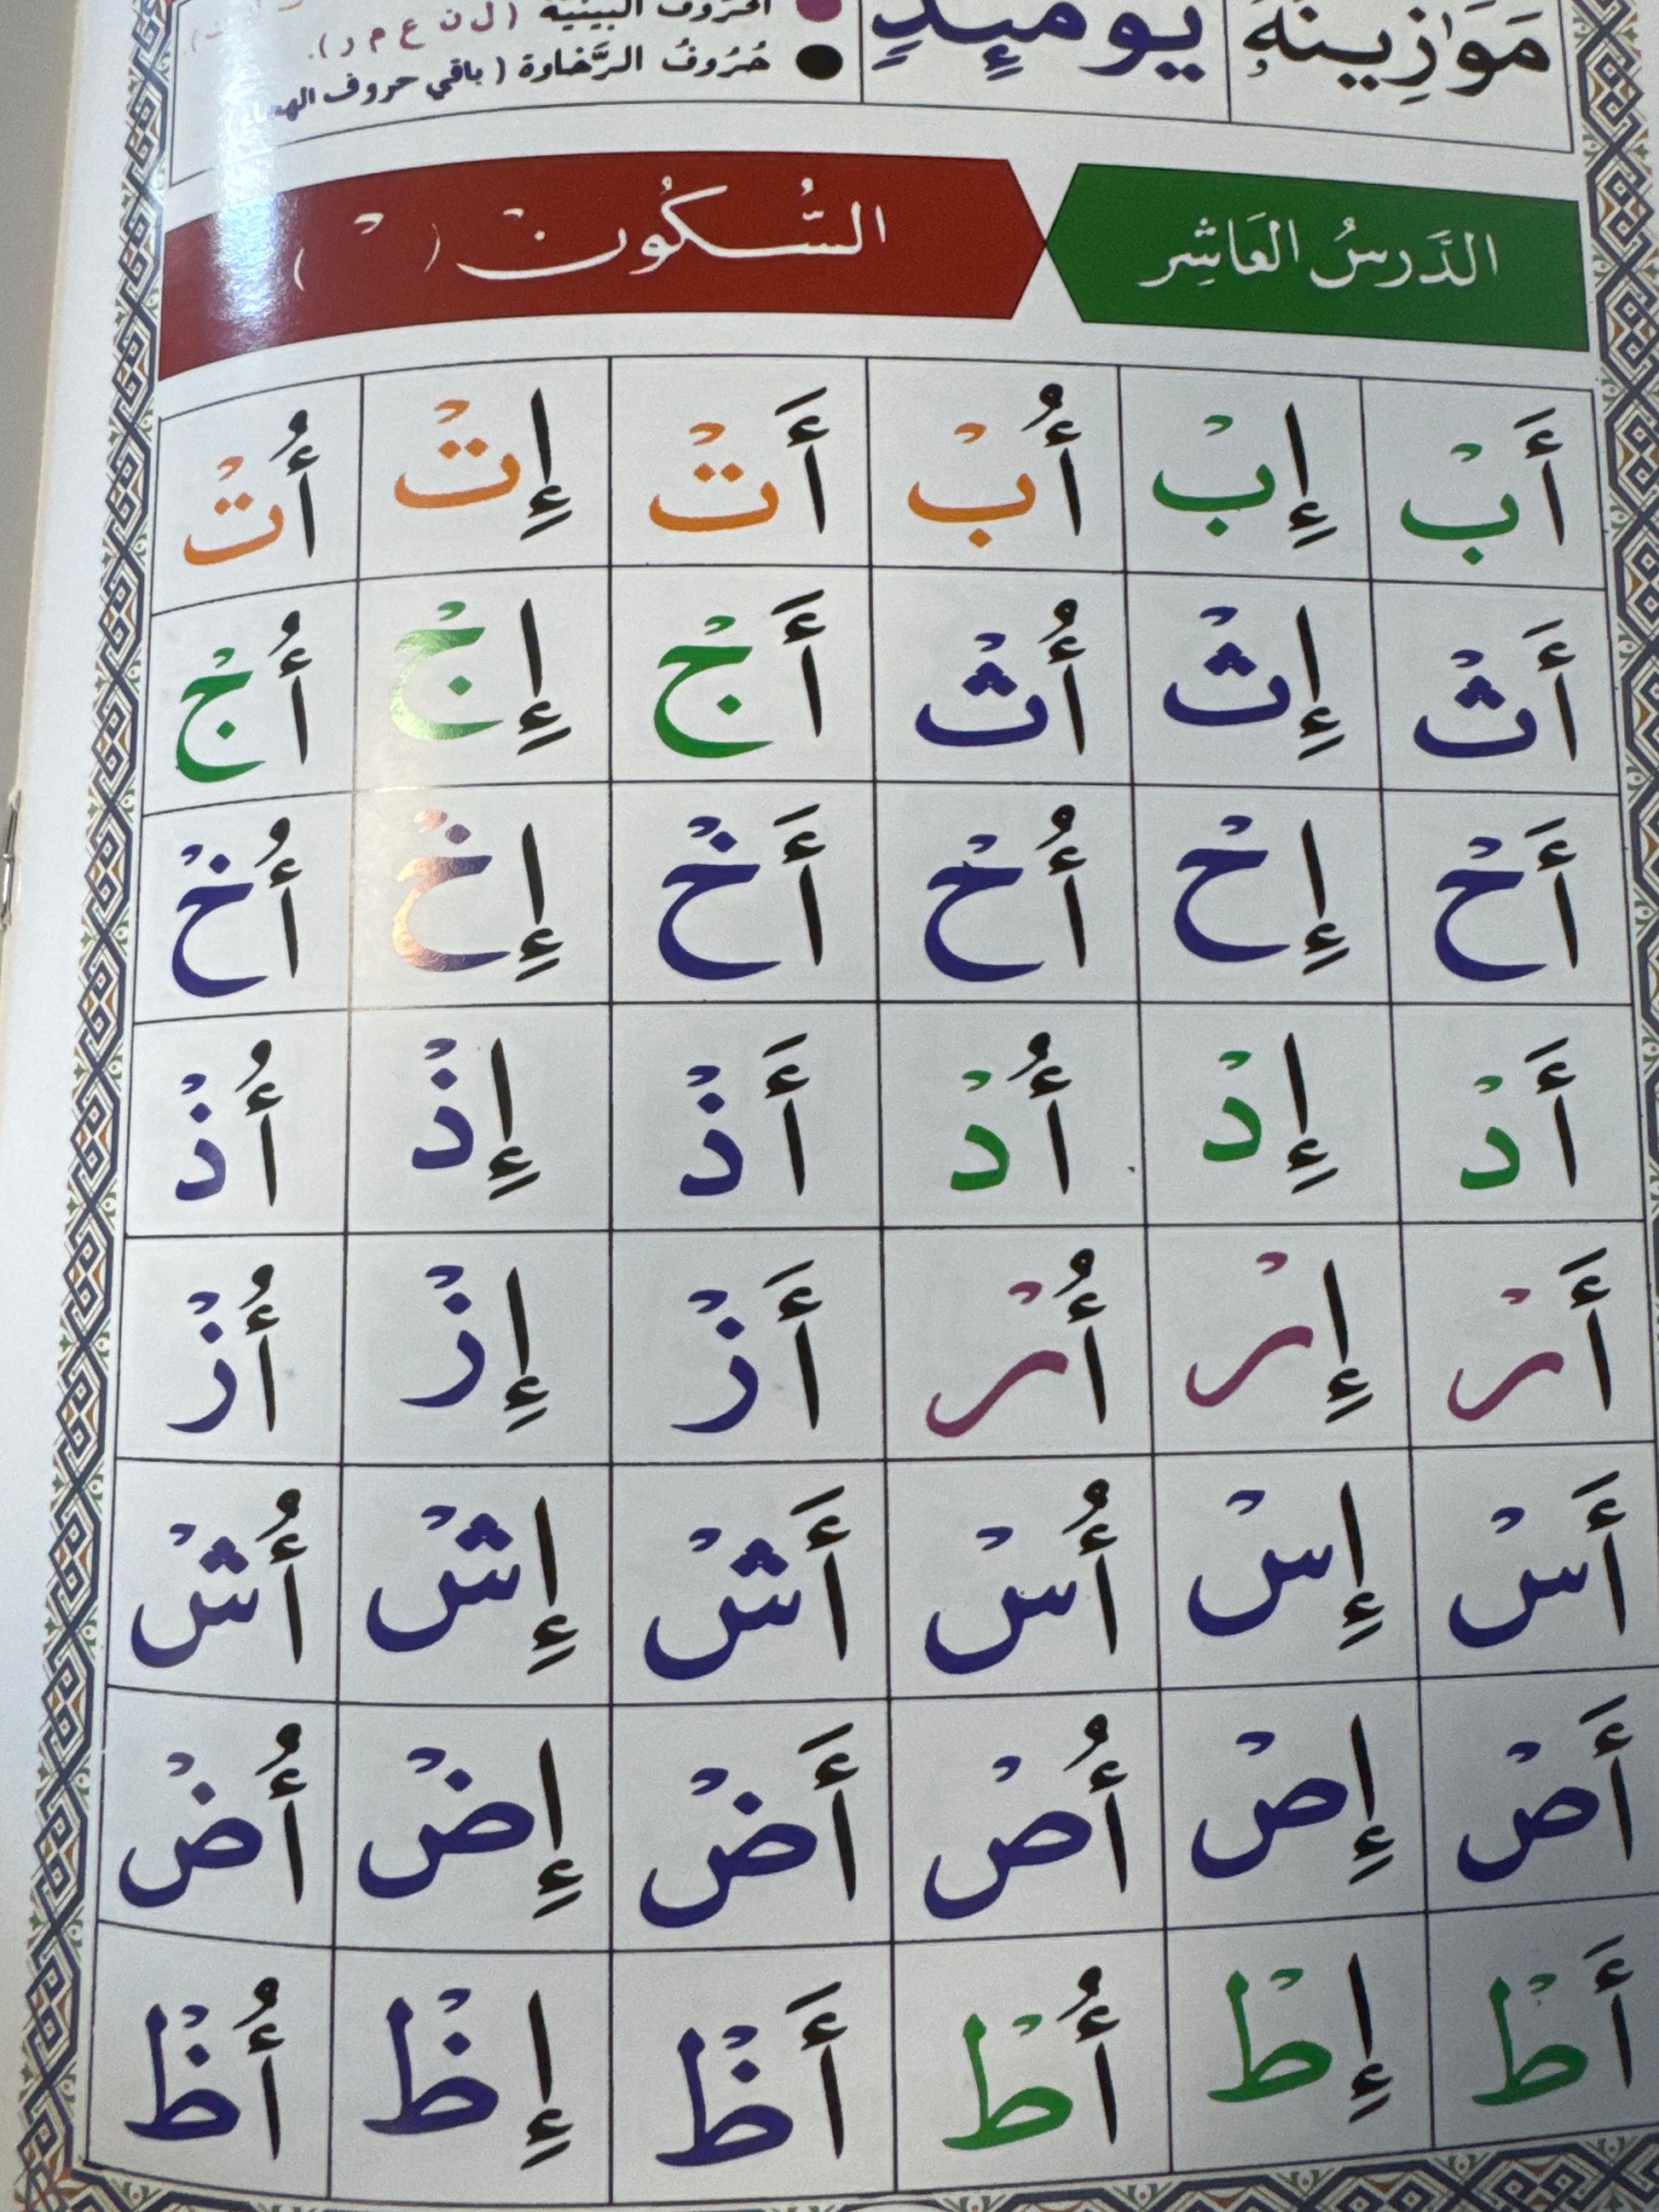 مَوَازِينُهُ يومَئِذٍ الحروف البينية (ل ن ع م ر).
حُرُوفُ الرَّخاوة (باقي حروف
الدَّرسُ العَاشِر السُّكُون ( ْ )
أَبْ إِبْ أُبْ أَتْ إِتْ أُتْ
أَثْ إِثْ أُثْ أَجْ إِجْ أُجْ
أَحْ إِحْ أُحْ أَخْ إِخْ أُخْ
أَدْ إِدْ أُدْ أَذْ إِذْ أُذْ
أَرْ إِرْ أُرْ أَزْ إِزْ أُزْ
أَسْ إِسْ أُسْ أَشْ إِشْ أُشْ
أَصْ إِصْ أُصْ أَضْ إِضْ أُضْ
أَطْ إِطْ أُطْ أَظْ إِظْ أُظْ